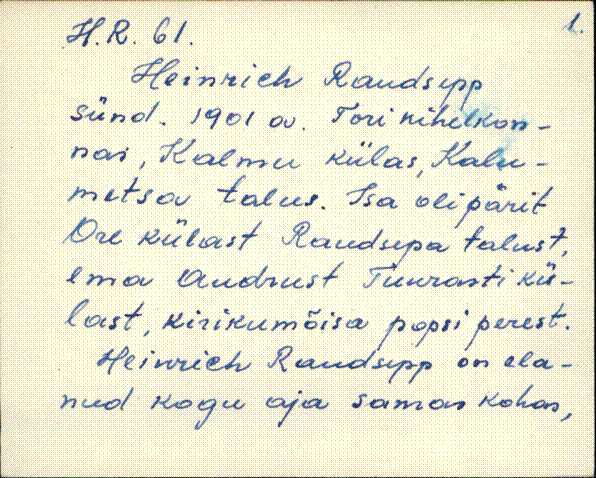 1.
H.R. 61.
Heinrich Raudsepp
sünd. 1901 a. Tori kihelkon-
nas, Kalmu külas, Kalu-
metsa talus. Isa oli pärit
Ore külast Raudsepa talust,
ema Audrust Tuurasti kü-
last, kirikumõisa popsi perest.
Heinrich Raudsepp on ela-
nud kogu aja samas kohas,